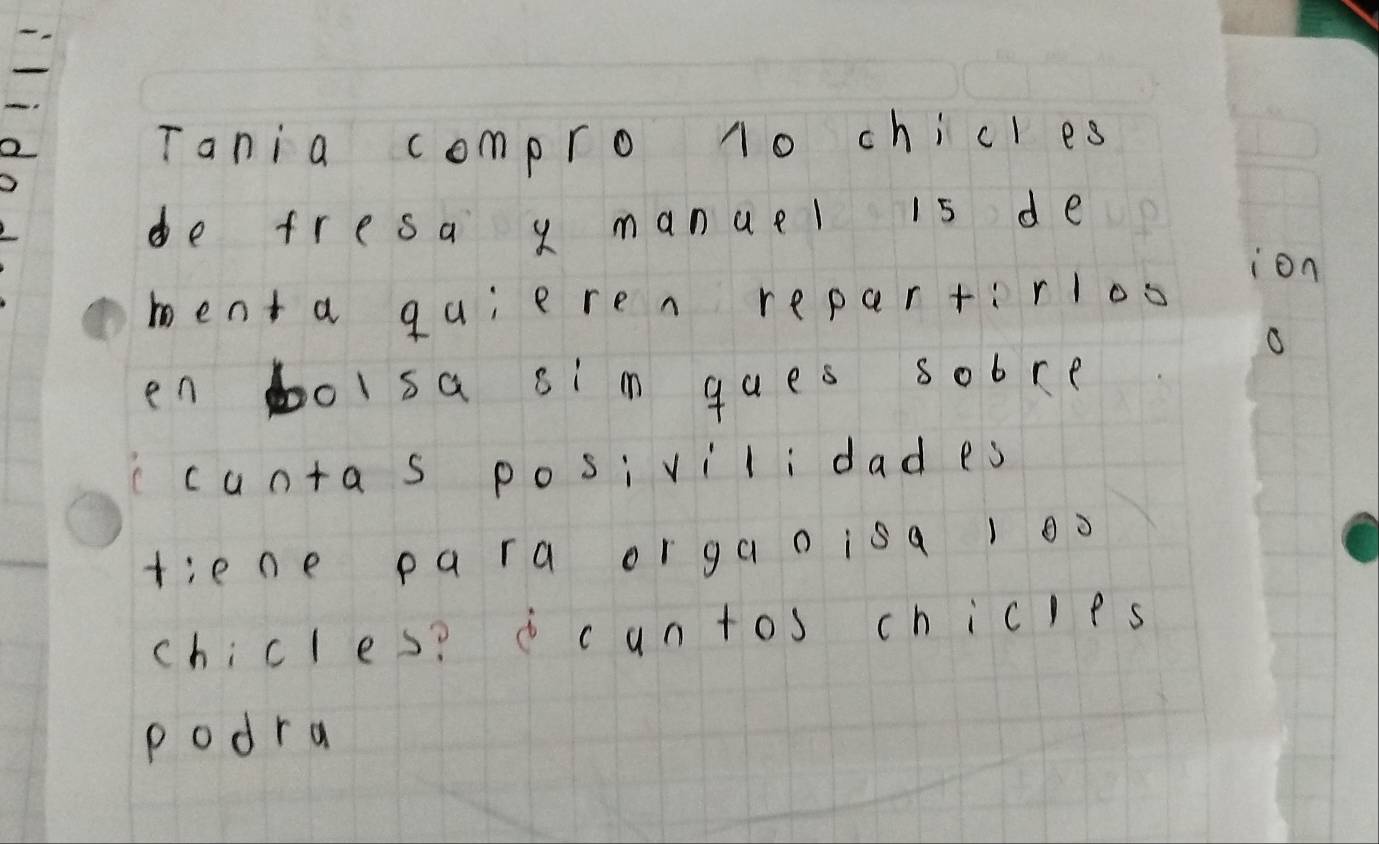 Tania compro 10 chicles
de fresa y manuel 15 de
menta quieren repartirlos
en bolsa sim ques sobre
¿cuntas posivilidades
tiene para organisa los
chicles? ¿cuntos chicles
podra
ion